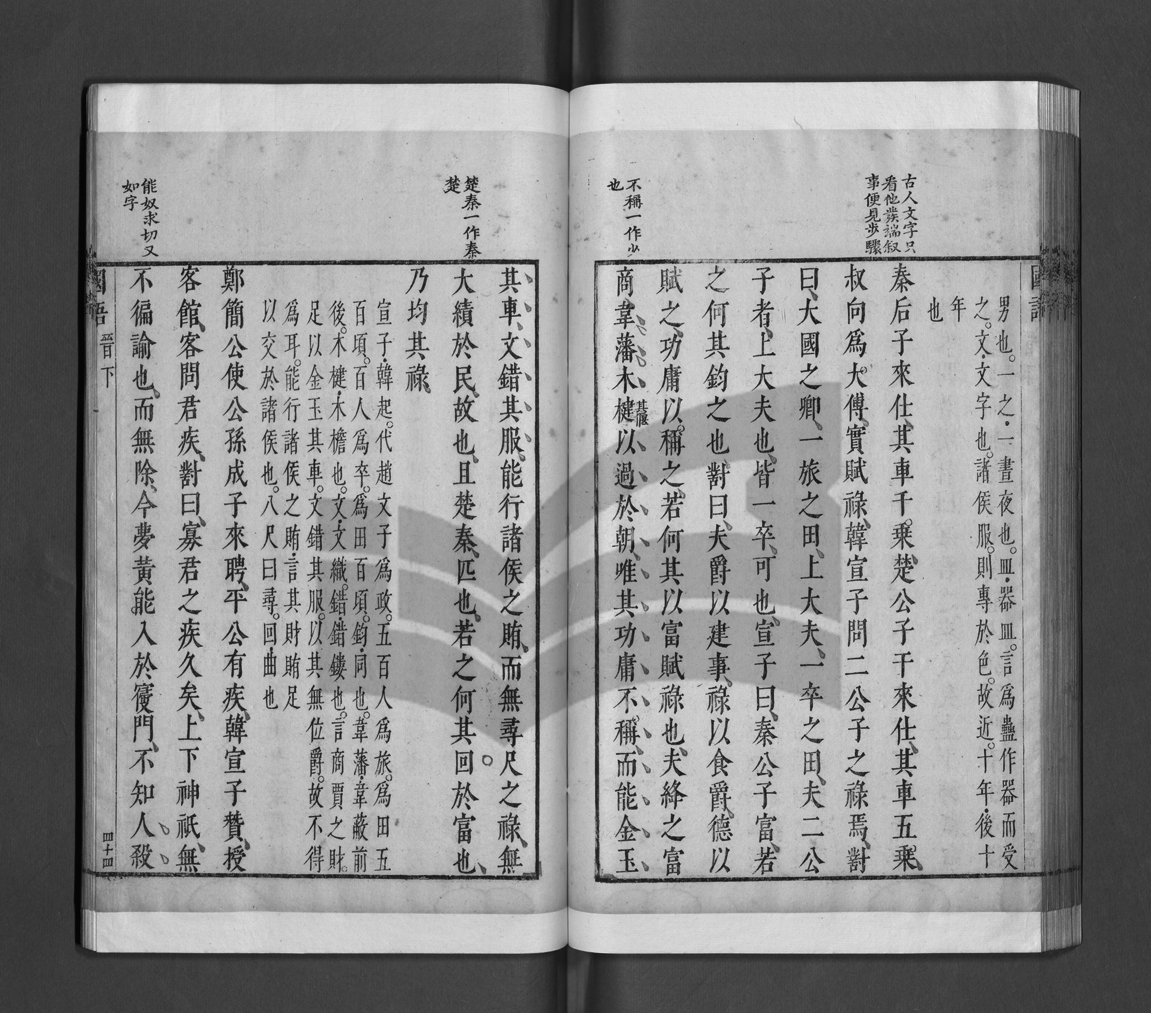 國語
古人文字只
看他發端叙
事便見步驟
不稱一作少
也
男也。一之·一晝夜也。皿·器皿。言為蠱作器而受
之。文·文字也。諸侯服。則專於色。故近。十年·後十
年
也
秦后子來仕、其車千乘、楚公子干來仕、其車五乘、
叔向爲大傅、實賦祿、韓宣子問二公子之祿焉、對
曰、大國之卿、一旅之田、上大夫、一卒之田、夫二公
子者、上大夫也、皆一卒、可也、宣子曰、秦公子富、若
之何其鈞之也、對曰、夫爵以建事、祿以食爵、德以
賦之、功庸以稱之、若何其以富賦祿也、夫絳之富
商、韋藩木楗其偃以過於朝、唯其功庸不稱、而能金玉
楚秦一作秦
楚
能奴求切又
如字
其車、文錯其服、能行諸侯之賄、而無尋尺之祿、無
大績於民、故也、且楚秦、匹也、若之何其回於富也、
乃均其祿、
宣子·韓起。代趙文子爲政。五百人爲旅。爲田五
百頃。百人爲卒。爲田百頃。鈞·同也。韋藩·韋蔽前
後。木楗·木檐也。文·文織。錯·錯鏤也。言商賈之財。
足以金玉其車。文錯其服。以其無位爵。故不得
爲耳。能行諸侯之賄·言其財賄足
以交於諸侯也。八尺曰尋。回·曲也
鄭簡公使公孫成子來聘、平公有疾、韓宣子贊、授
客館、客問君疾、對曰、寡君之疾久矣、上下神祇、無
不徧諭也、而無除、今夢黃能入於寢門、不知人殺
國語
晉下
四十四